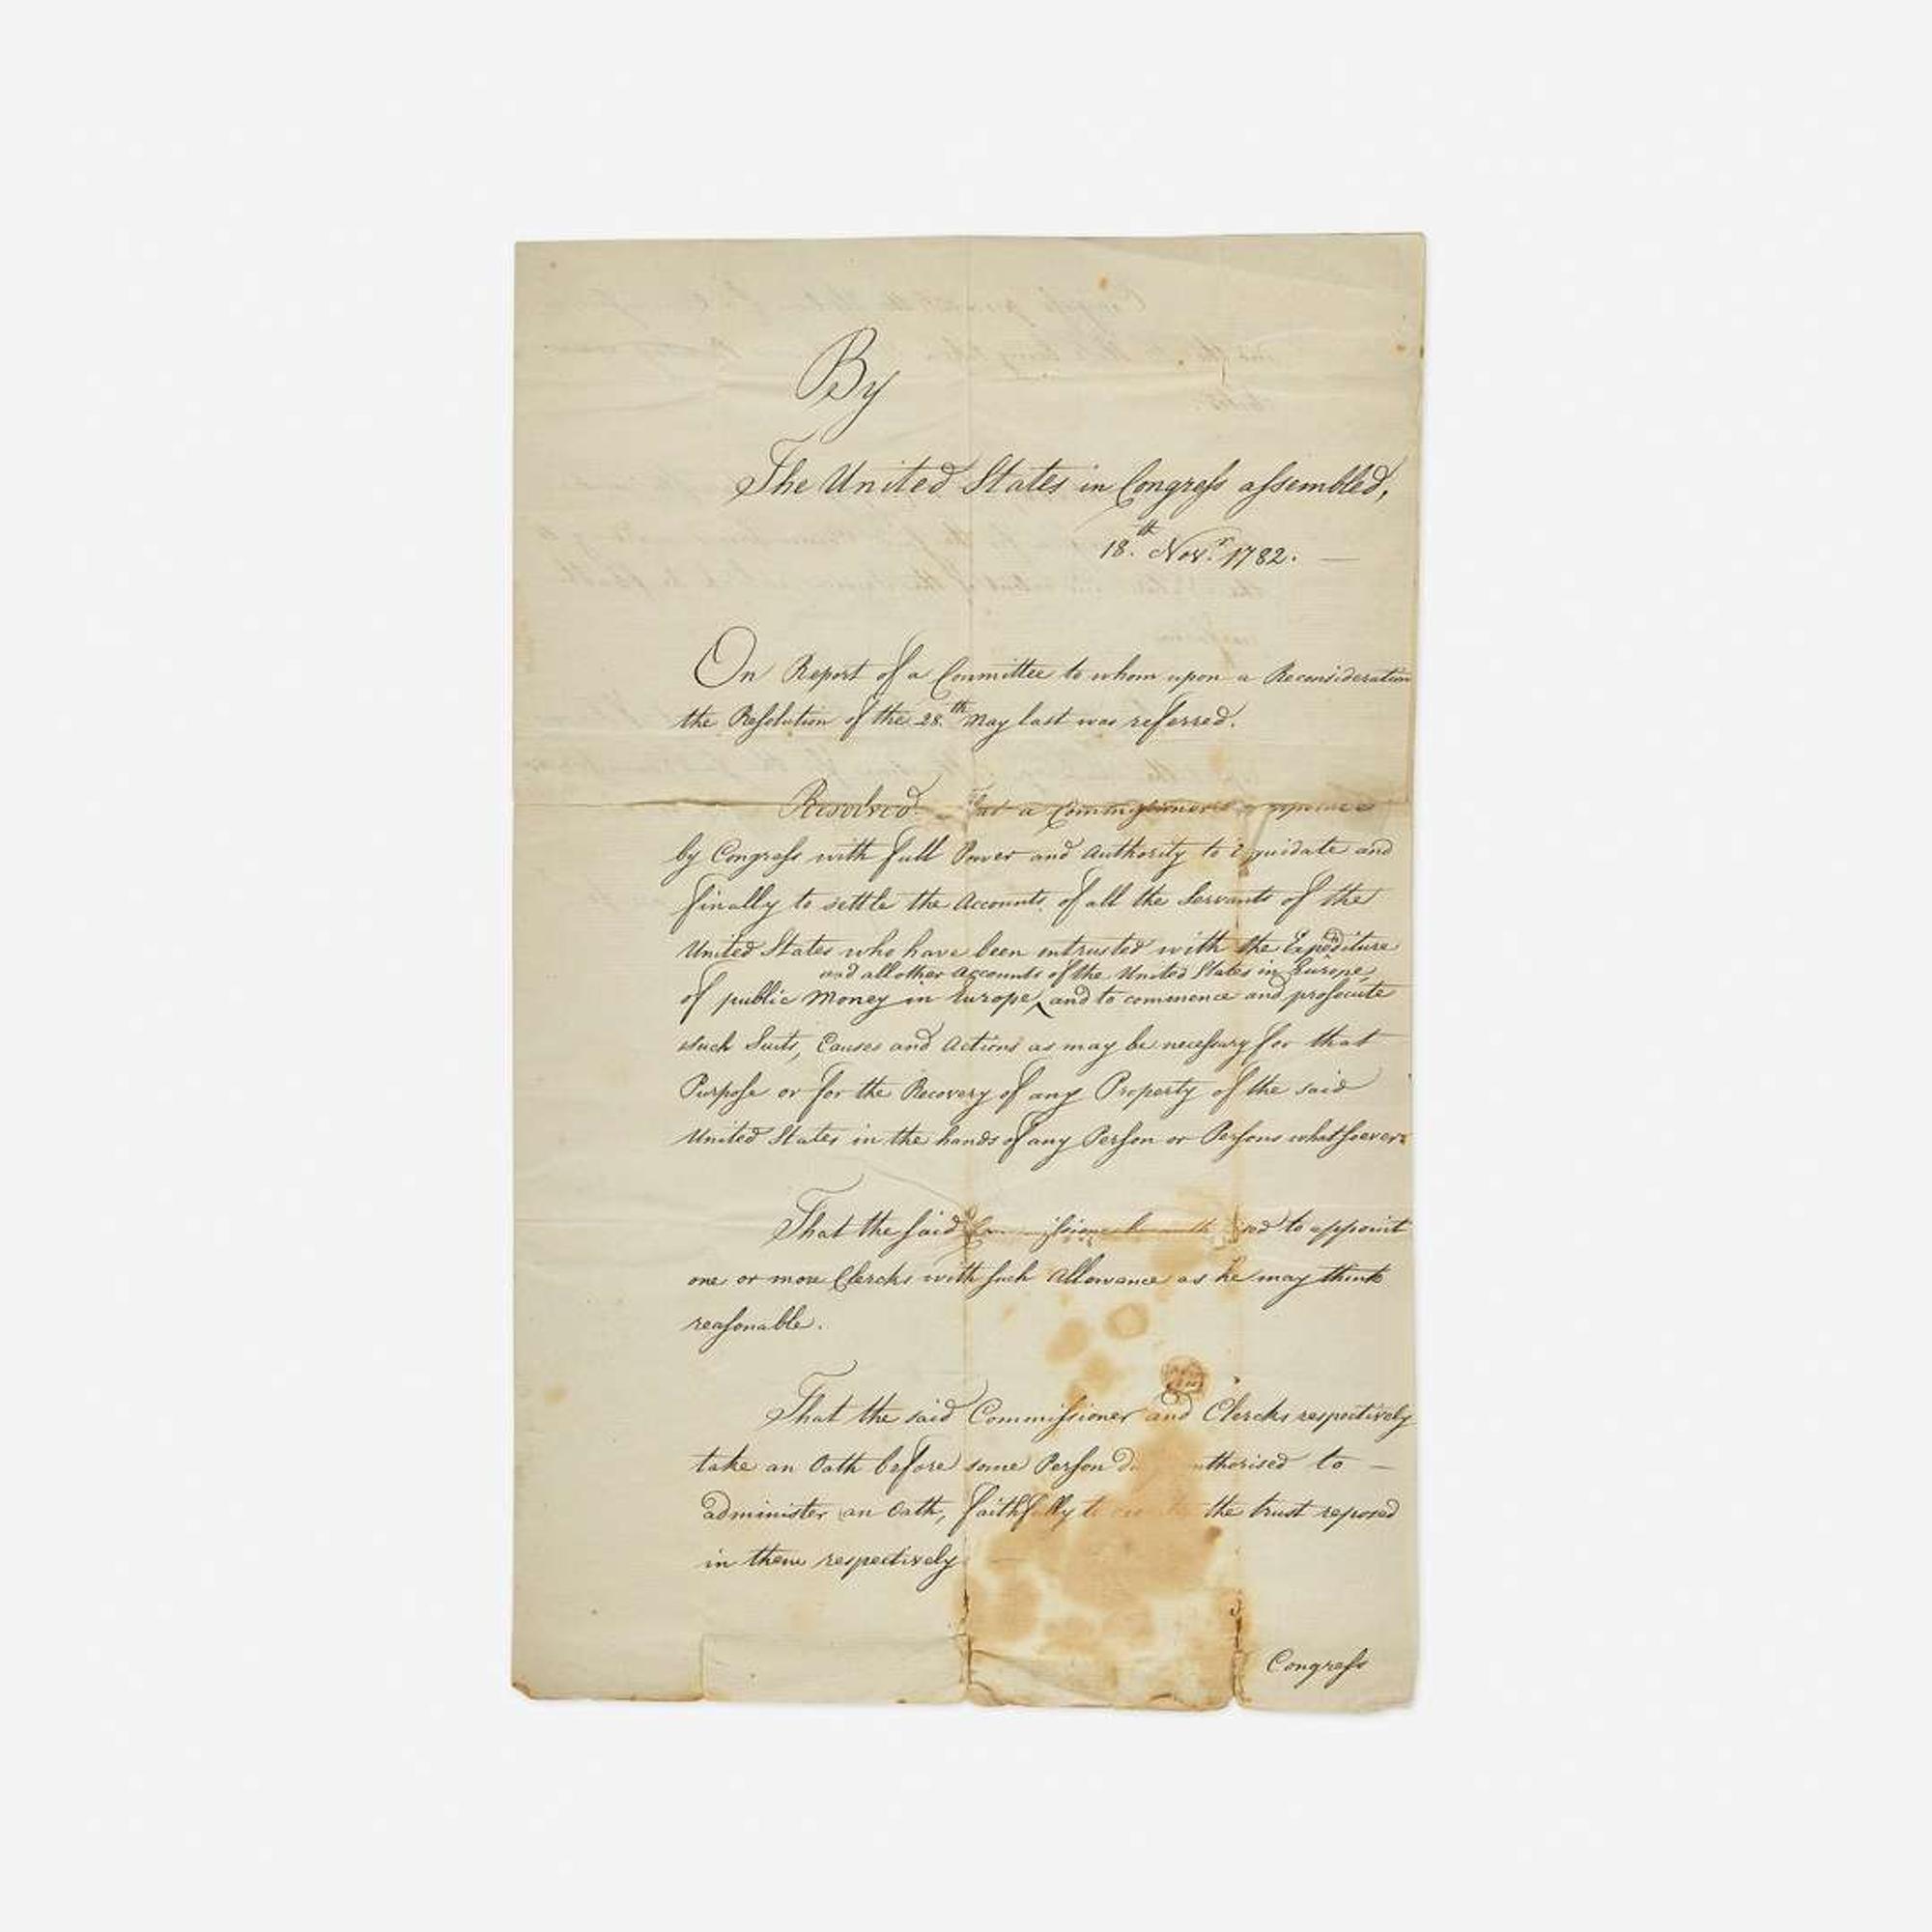 By
The United States in Congress assembled,
18.th Nov.r 1782. —
On Report of a Committee to whom upon a Reconsideration
the Resolution of the 28.th May last was referred.
Resolved. That a Commissioner appointed
by Congress with full Power and Authority to liquidate and
finally to settle the Accounts of all the Servants of the
United States who have been entrusted with the Expenditure
and all other Accounts of the United States in Europe
of public Money in Europe, ^ and to commence and prosecute
such Suits, Causes and Actions as may be necessary for that
Purpose or for the Recovery of any Property of the said
United States in the hands of any Person or Persons whatsoever.
That the said Commissioner to appoint
one or more Clercks with such Allowance as he may think
reasonable.
That the said Commissioner and Clercks respectively
take an Oath before some Person authorised to —
administer an Oath, faithfully to the trust reposed
in them respectively
Congress